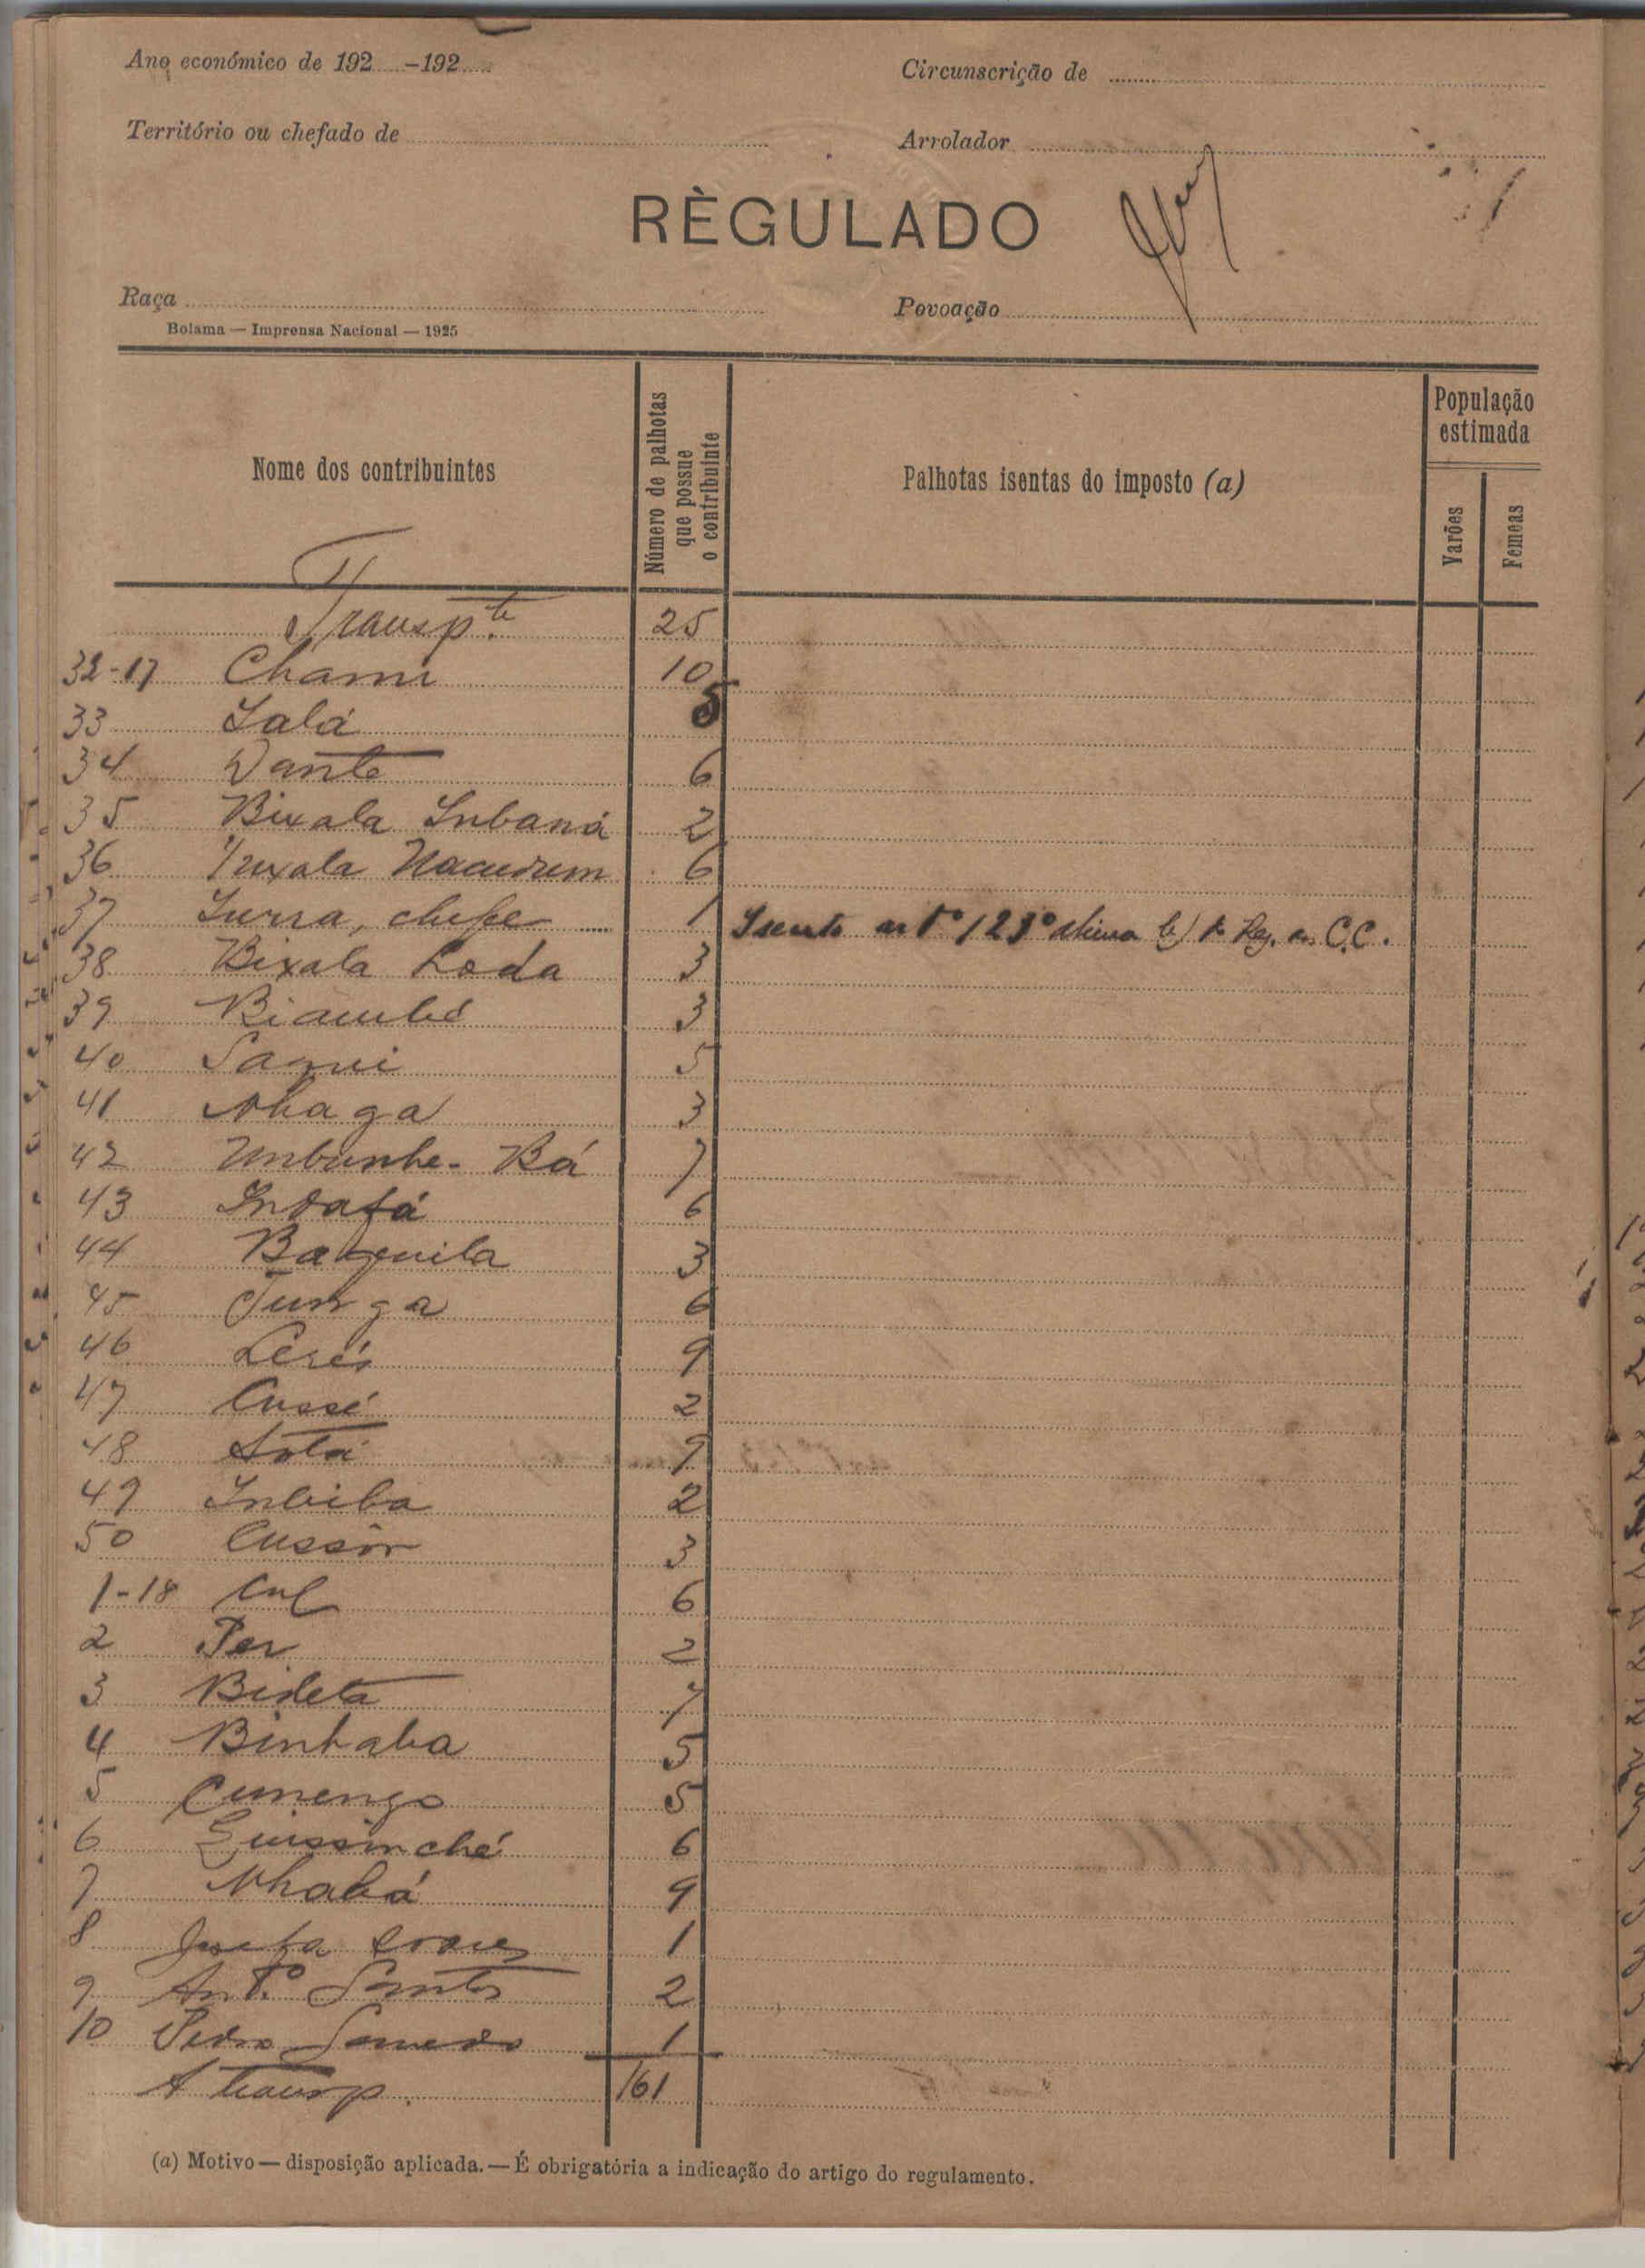 Ano económico de 192 -192
Circunscrição de
Território ou chefado de
Arrolador
RÈGULADO
Raça
Povoação
Bolama — Imprensa Nacional — 1925
Nome dos contribuintes
Número de palhotas que possue o contribuinte
Palhotas isentas do imposto (a)
População estimada
Varões
Femeas
Transp.te 25
32-17 Chami 10
33 Lalá 5
34 Dante 6
35 Bixala Inbaná 2
36 6
37 Iurra, chefe 1 Isento art.º 123º alinea b) C.C.
38 Bixala Loda 3
39 Biambé 3
40 Sanui 5
41 Nhaga 3
42 Unbunhe-Bá 7
43 Indafá 6
44 Baquila 3
45 Tunga 6
46 Lerés 9
47 Cussé 2
48 9
49 Inbiba 2
50 Cussôr 3
1-18 Cul 6
2 Per 2
3 Bideta 7
4 Binhaba 5
5 Cumengo 5
6 Quissinché 6
7 Nhabá 9
8 1
9 Ant.º Santos 2
10 Pedro 1
A transp. 161
(a) Motivo — disposição aplicada. — É obrigatória a indicação do artigo do regulamento.